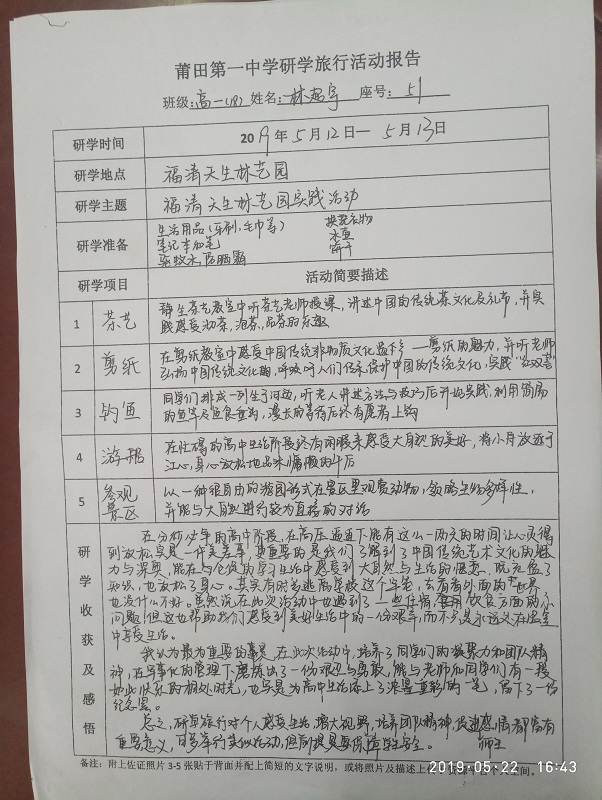 莆田第一中学研学旅行活动报告
班级:高一(8) 姓名: 林 宇 座号: 51
研学时间 2019年5月12日— 5月13日
研学地点 福清天生林艺园
研学主题 福清天生林艺园实践活动
研学准备 生活用品(牙刷,毛巾等) 换洗衣物
笔记本和笔 水壶
驱蚊水,防晒霜 饼干
研学项目 活动简要描述
1 茶艺 师生茶艺教室中听茶艺老师授课,讲述中国的传统茶文化及礼节,并实
践感受泡茶、品茶的乐趣
2 剪纸 在剪纸教室中感受中国传统非物质文化遗产——剪纸的魅力,并听老师
弘扬中国传统文化,呼吁人们传承保护中国的传统文化,实践“红双喜”
3 钓鱼 同学们排成一列坐于河边,听老人讲述方法与技巧后开始实践,利用简易
的鱼竿及鱼食垂钓,漫长的等待后终有鱼上钩
4 游船 在忙碌的高中生活阶段终有闲暇来感受大自然的美好,将小舟放逐于
江心,身心放松地品味慵懒的午后
5 参观景区 以一种很自由的游园形式在景区里观赏动物,领略生物多样性,
并能与大自然进行较为直接的对话
研学收获及感悟
在分秒必争的高中阶段,在高压逼迫下能有这么一两天的时间让心灵得
到放松实是一件美差事,更重要的是我们了解到了中国传统艺术文化的魅
力与深奥,能在与仓促的学习生活中感受到大自然与生活的惬意,既充盈了
知识,也放松了身心。其实有时逃离学校这个牢笼,去看看外面的世界
也没什么不好。虽然说在此次活动中也遇到了一些住宿,饮食方面的小
问题,但这也帮助我们感受到美好生活中的一份艰辛,而不只是永远只在温室
中享受生活。
我认为最为重要的事是,在此次活动中,培养了同学们的凝聚力和团队精
神,在军事化的管理下磨练出了一份艰卫与勇敢,能与老师和同学们有一段
如此快乐的相处时光,也实是为高中生活添上了浓墨重彩的一笔,留下了一份
纪念品。
总之,研学旅行对个人感受生活,增大视野,培养团队精神,促进师生感情都富有
重要意义,可多举行类似活动,但前提是要保障好安全。
备注:附上佐证照片 3-5 张贴于背面并配上简短的文字说明,或将照片及描述上
2019-05-22 16:43